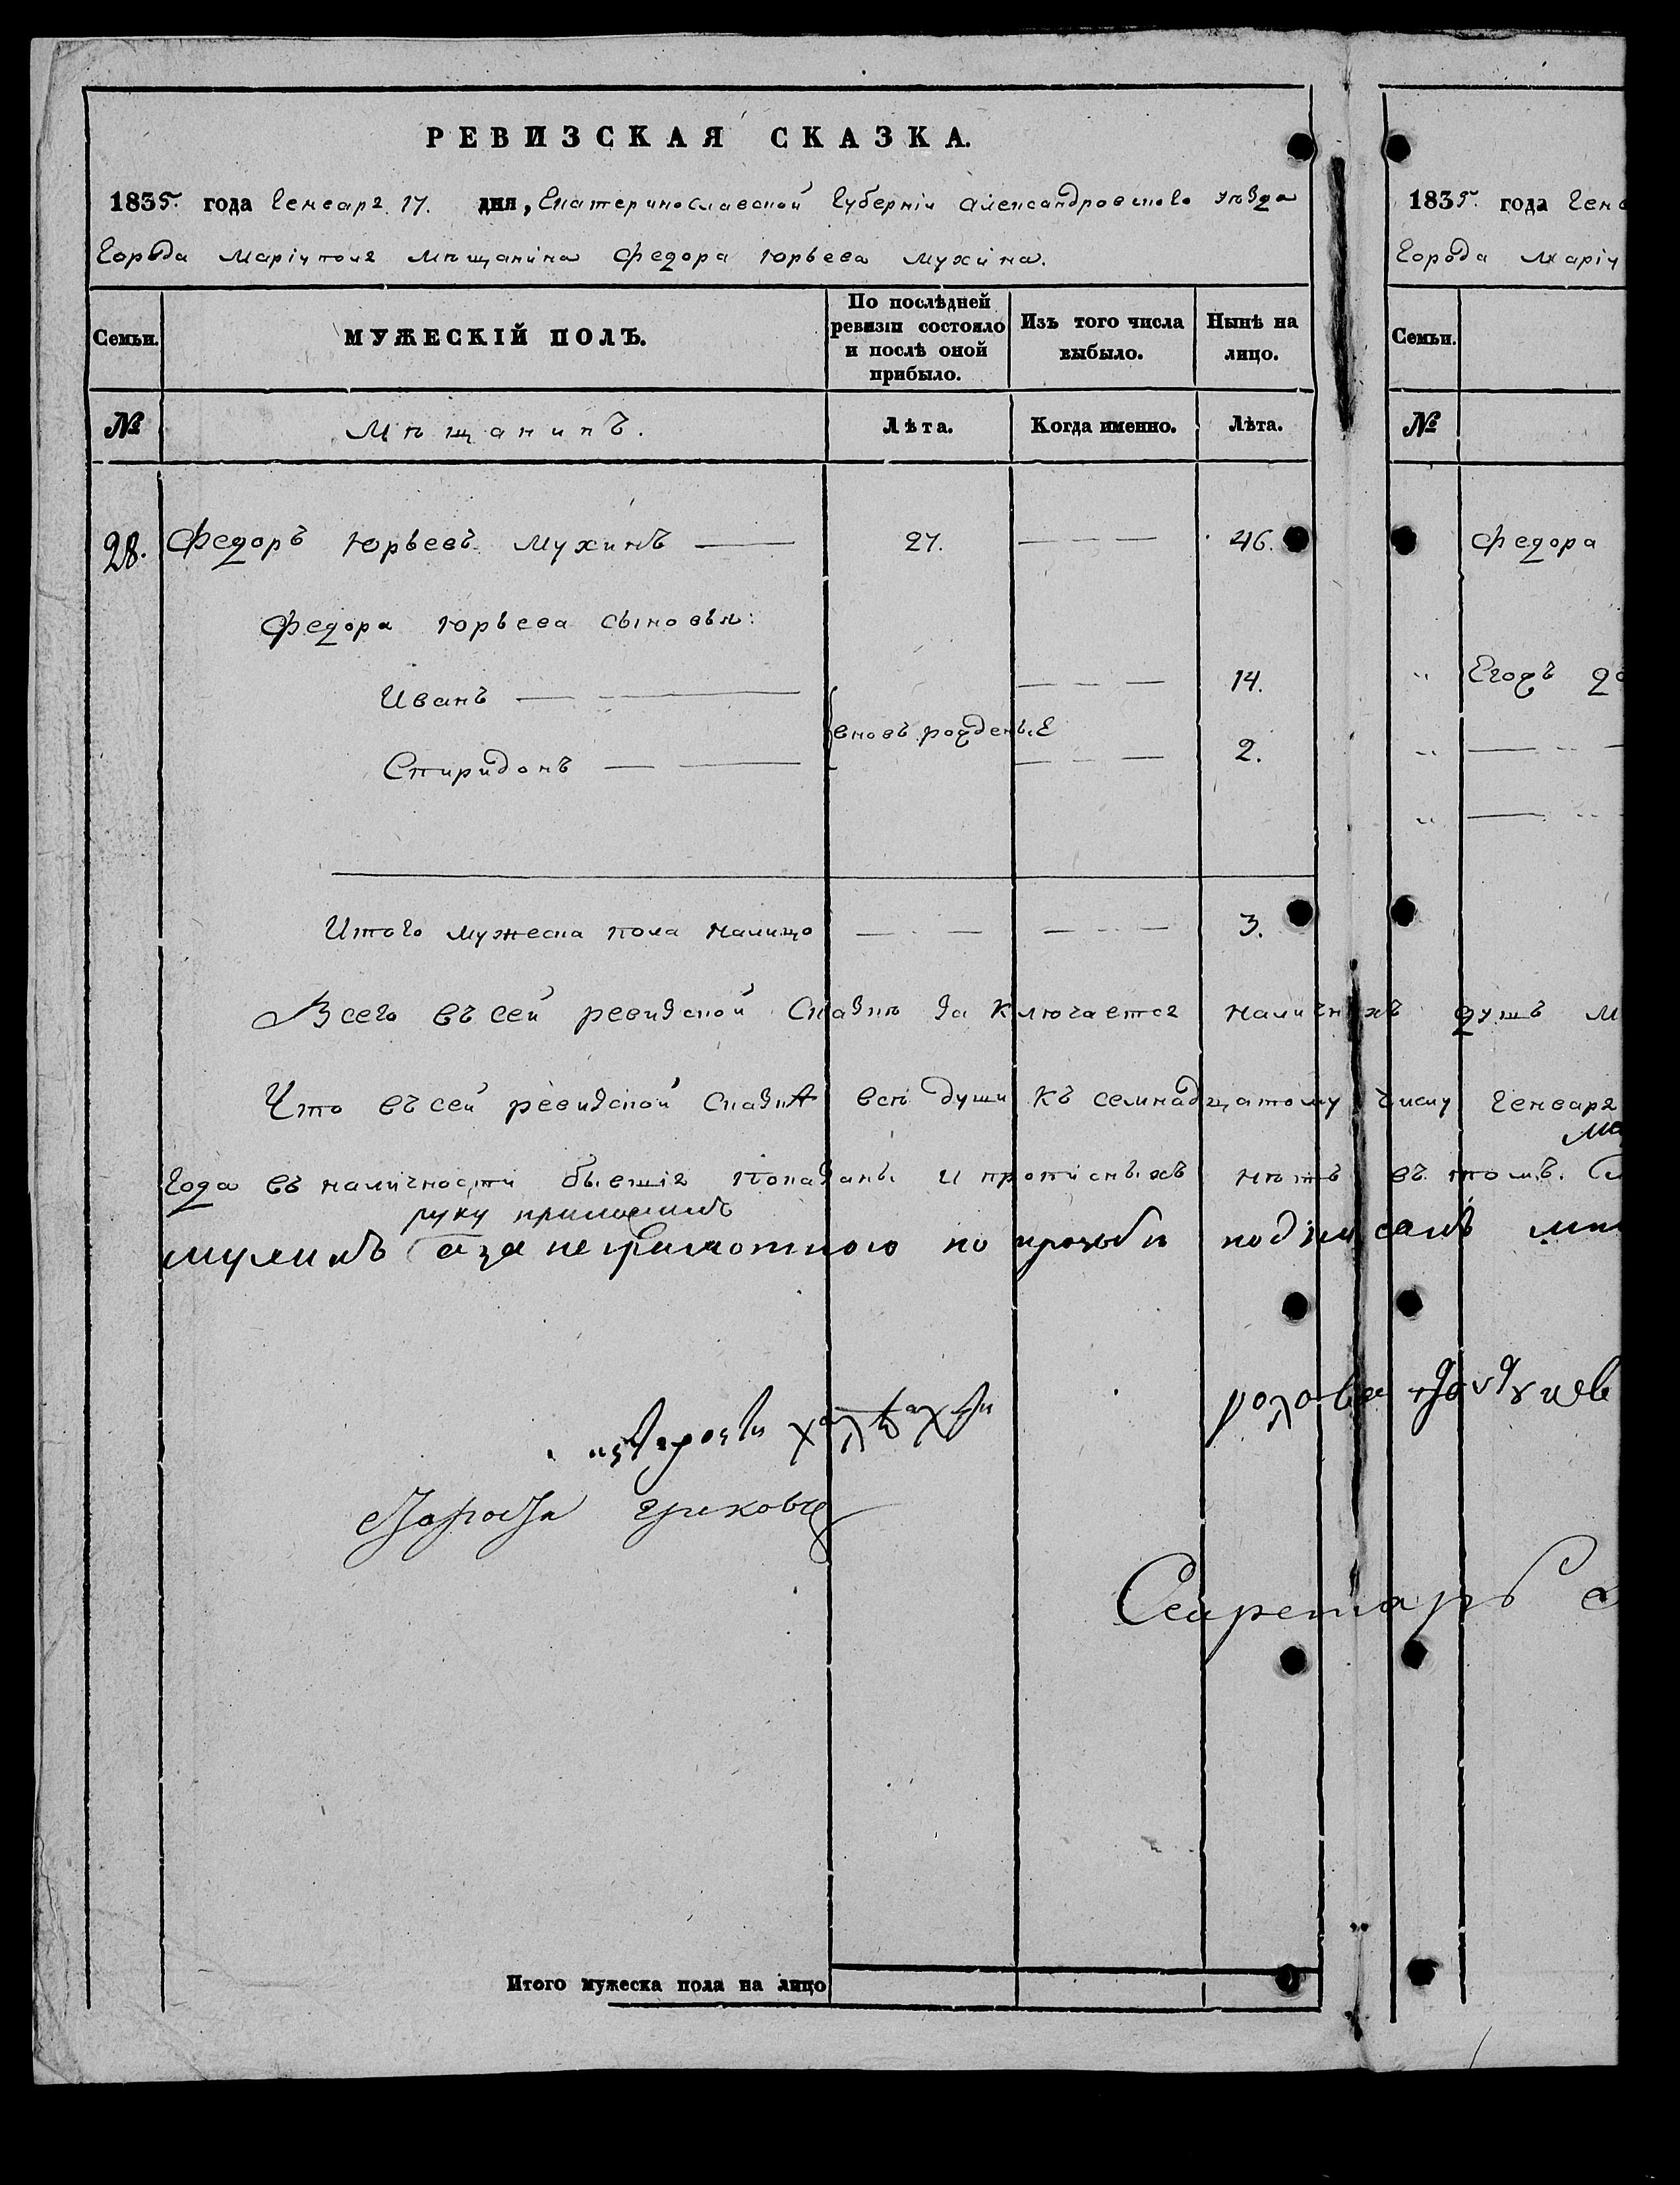 РЕВИЗСКАЯ СКАЗКА.
1835. года Генваря 17. дня, Екатеринославской Губерніи Александровскаго уѣзда
Города Маріуполя мѣщанина Федора Юрьева Мухина.
Семьи.
МУЖЕСКІЙ ПОЛЪ.
По послѣдней ревизіи состояло и послѣ оной прибыло.
Изъ того числа выбыло.
Нынѣ на лицо.
№ Мѣщанинъ. Лѣта. Когда именно. Лѣта.
28. Федоръ Юрьевъ Мухинъ 27. 46.
Федора Юрьева сыновья:
Иванъ 14.
вновь рожденые
Спиридонъ 2.
Итого мужеска пола налицо 3.
Всего въ сей ревизской Сказкѣ заключается наличныхъ душъ м
Что въ сей ревизской Сказкѣ всѣ души къ семнадцатому числу Генваря
Года въ наличности бывшія показаны и прописныхъ нѣтъ въ томъ.
руку приложилъ
мухинъ а за неграмотного по прозьбѣ подписалъ
староста
Секретарь
Итого мужеска пола на лицо
1835. года Ген
Города Маріу
Семьи.
№
Федора
Егоръ до